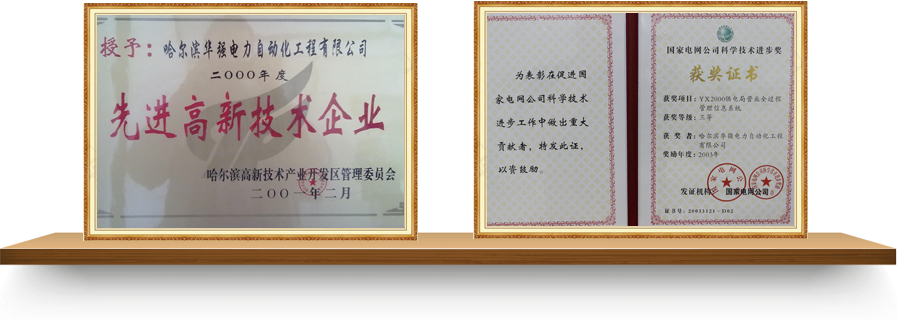 授予：哈尔滨华强电力自动化工程有限公司
二000年度
先进高新技术企业
哈尔滨高新技术产业开发区管理委员会
二00一年二月
为表彰在促进国
家电网公司科学技术
进步工作中做出重大
贡献者，特发此证，
以资鼓励。
国家电网公司科学技术进步奖
获奖证书
获奖项目：YX2000供电局营业全过程
管理信息系统
获奖等级：三等
获奖者：哈尔滨华强电力自动化工程
有限公司
奖励年度：2003年
发证机构 国家电网公司
证书号：20033121-D02